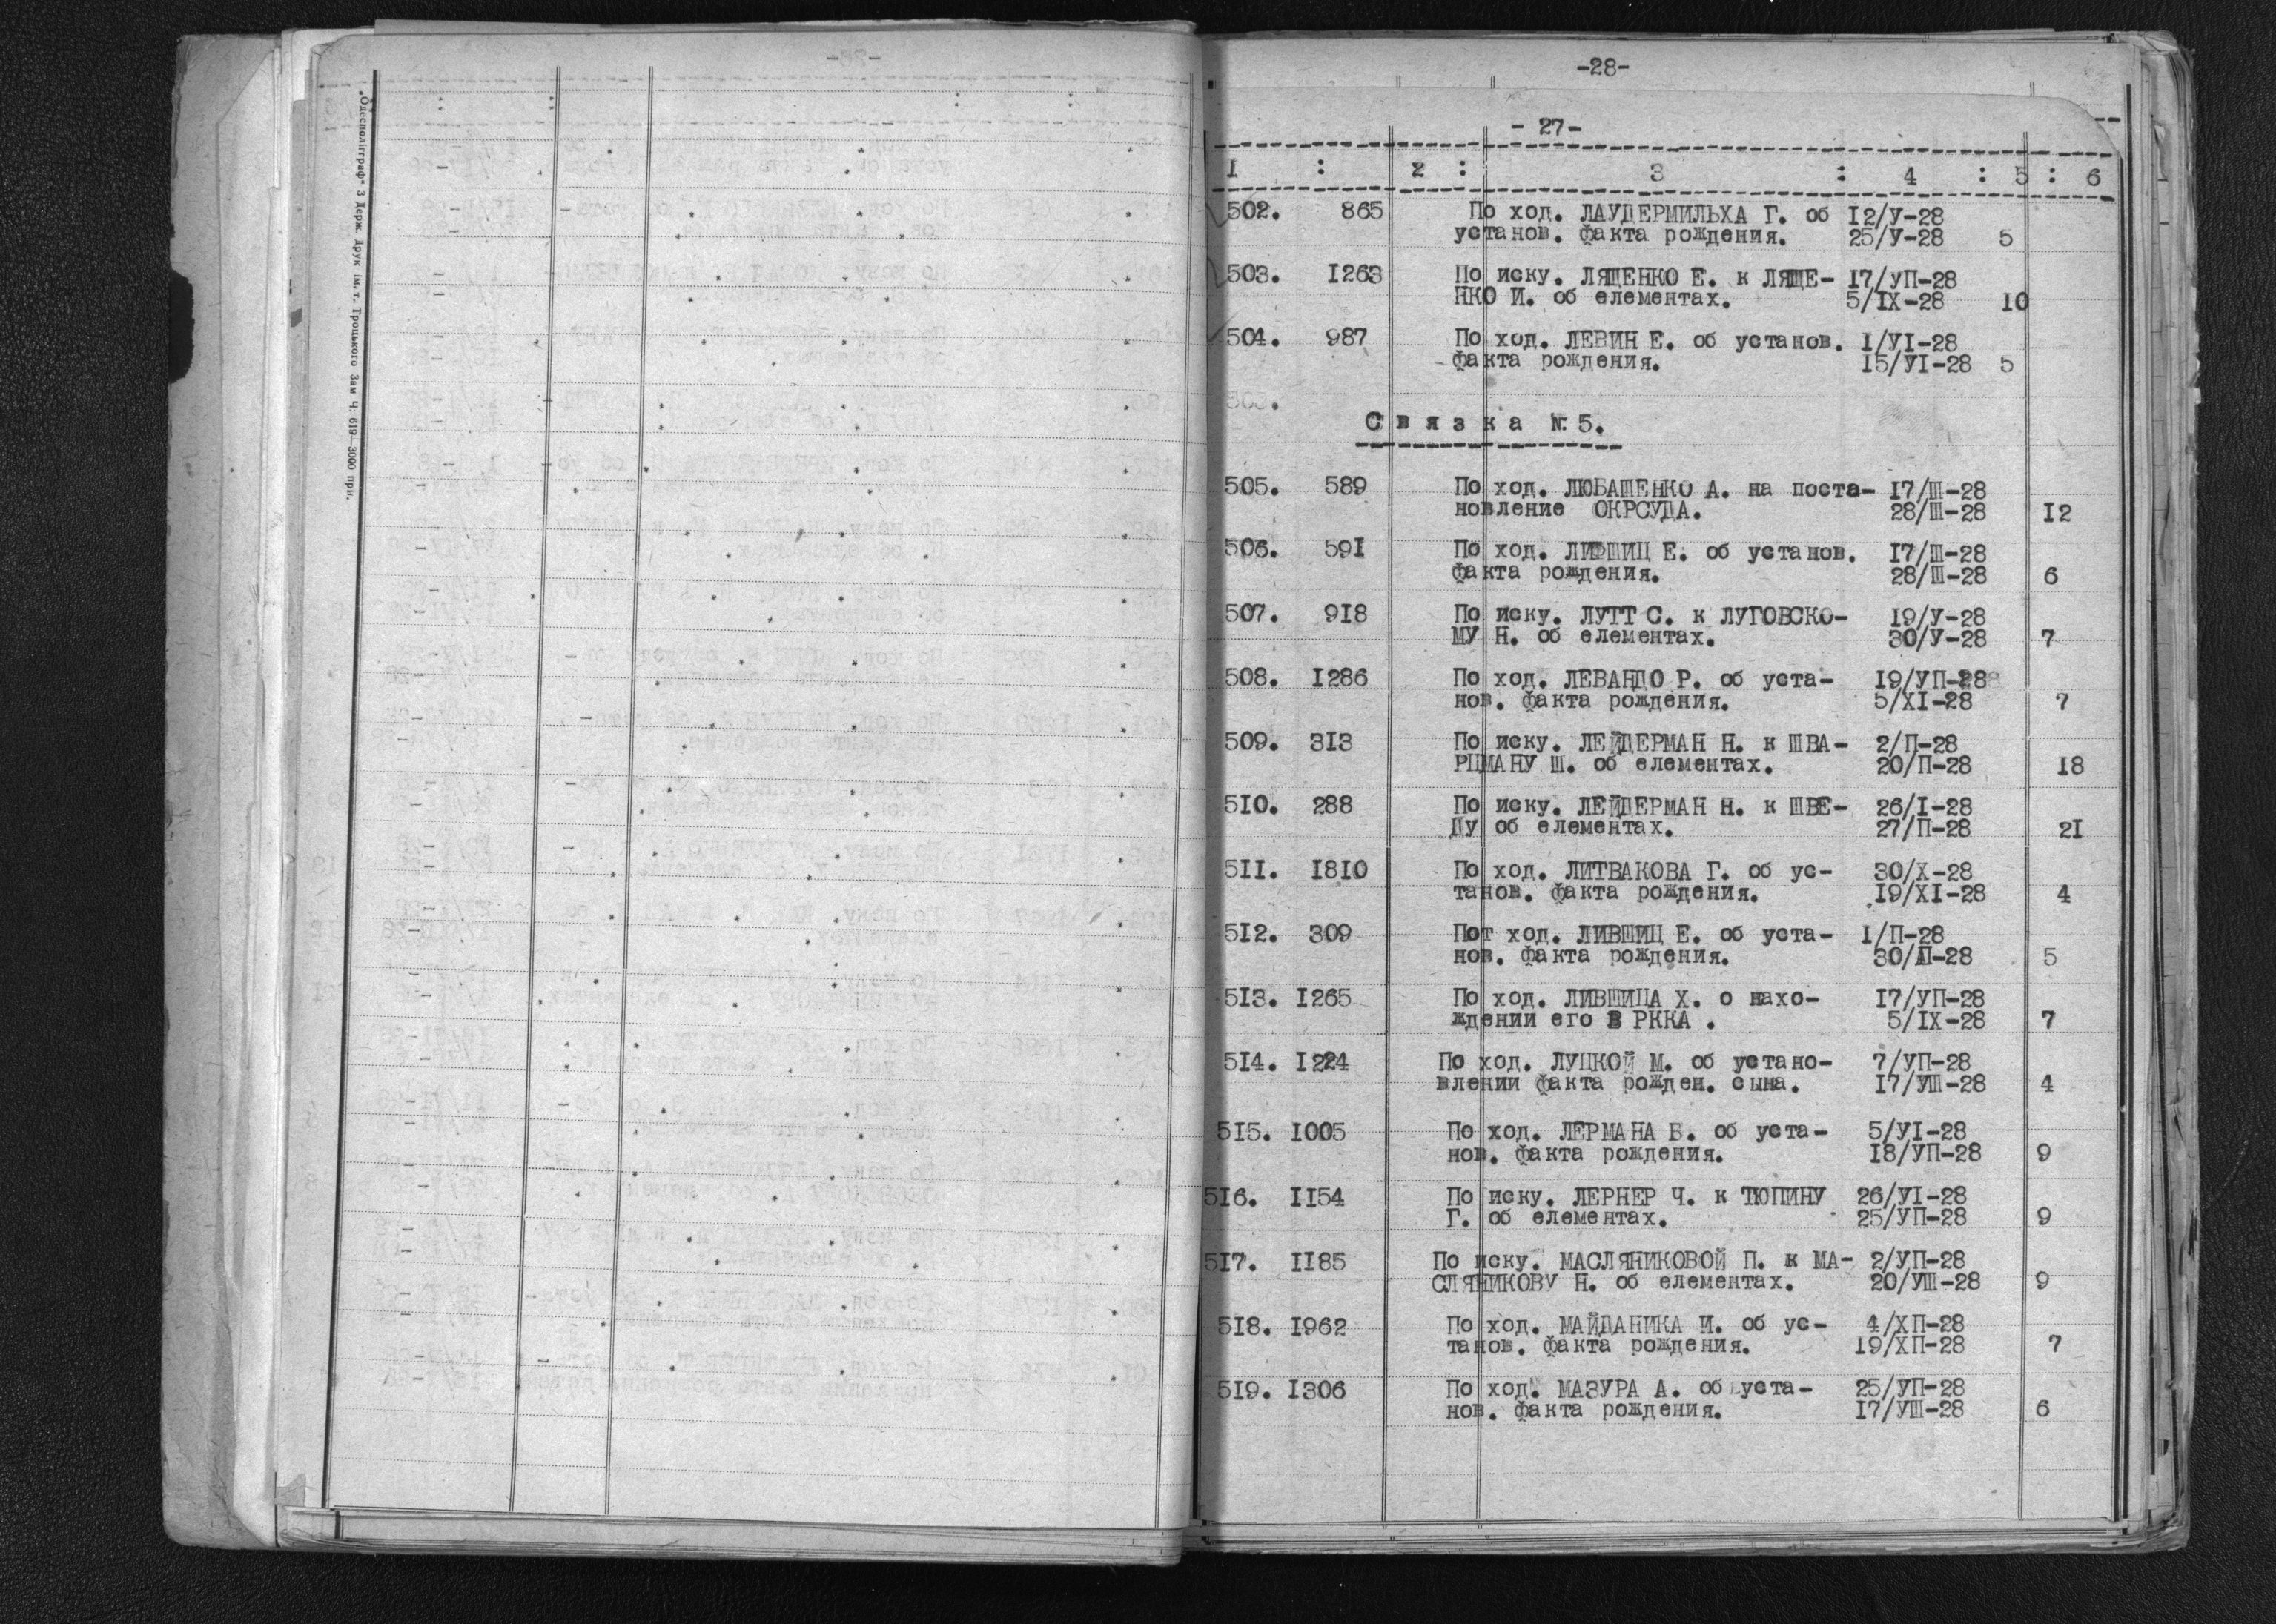 "Одесполіграф" 3 Держ. Друк ім. т. Троцького Зам Ч. 619—3000 прн.
-28-
- 27-
I : 2 : 3 : 4 : 5 : 6
502. 865 По ход. ЛАУДЕРМИЛЬХА Г. об I2/У-28
установ. факта рождения. 25/У-28 5
503. I263 По иску. ЛЯЩЕНКО Е. к ЛЯЩЕ- I7/УП-28
НКО И. об елементах. 5/IX-28 I0
504. 987 По ход. ЛЕВИН Е. об установ. I/УI-28
факта рождения. I5/УI-28 5
Связка №5.
505. 589 По ход. ЛЮБАШЕНКО А. на поста- I7/Ш-28
новление ОКРСУДА. 28/Ш-28 I2
506. 59I По ход. ЛИФШИЦ Е. об установ. I7/Ш-28
факта рождения. 28/Ш-28 6
507. 9I8 По иску. ЛУТТ С. к ЛУГОВСКО- I9/У-28
МУ Н. об елементах. 30/У-28 7
508. I286 По ход. ЛЕВАНДО Р. об уста- I9/УП-28
нов. факта рождения. 5/XI-28 7
509. 3I3 По иску. ЛЕЙДЕРМАН Н. к ШВА- 2/П-28
РЦМАНУ Ш. об елементах. 20/П-28 I8
5I0. 288 По иску. ЛЕЙДЕРМАН Н. к ШВЕ- 26/I-28
ЦУ об елементах. 27/П-28 2I
5II. I8I0 По ход. ЛИТВАКОВА Г. об ус- 30/X-28
танов. факта рождения. I9/XI-28 4
5I2. 309 Пот ход. ЛИВШИЦ Е. об уста- I/П-28
нов. факта рождения. 30/П-28 5
5I3. I265 По ход. ЛИВШИЦА Х. о нахо- I7/УП-28
ждении его в РККА . 5/IX-28 7
5I4. I224 По ход. ЛУЦКОЙ М. об устано- 7/УП-28
влении факта рожден. сына. I7/УШ-28 4
5I5. I005 По ход. ЛЕРМАНА Б. об уста- 5/УI-28
нов. факта рождения. I8/УП-28 9
5I6. II54 По иску. ЛЕРНЕР Ч. к ТЮПИНУ 26/УI-28
Г. об елементах. 25/УП-28 9
5I7. II85 По иску. МАСЛЯНИКОВОЙ П. к МА- 2/УП-28
СЛЯНИКОВУ Н. об елементах. 20/УШ-28 9
5I8. I962 По ход. МАЙДАНИКА И. об ус- 4/ХП-28
танов. факта рождения. I9/ХП-28 7
5I9. I306 По ход. МАЗУРА А. об уста- 25/УП-28
нов. факта рождения. I7/УШ-28 6